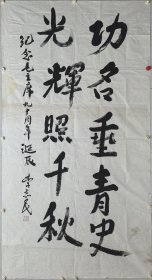 功名垂青史
光輝照千秋
纪念毛主席九十周年诞辰 李志民